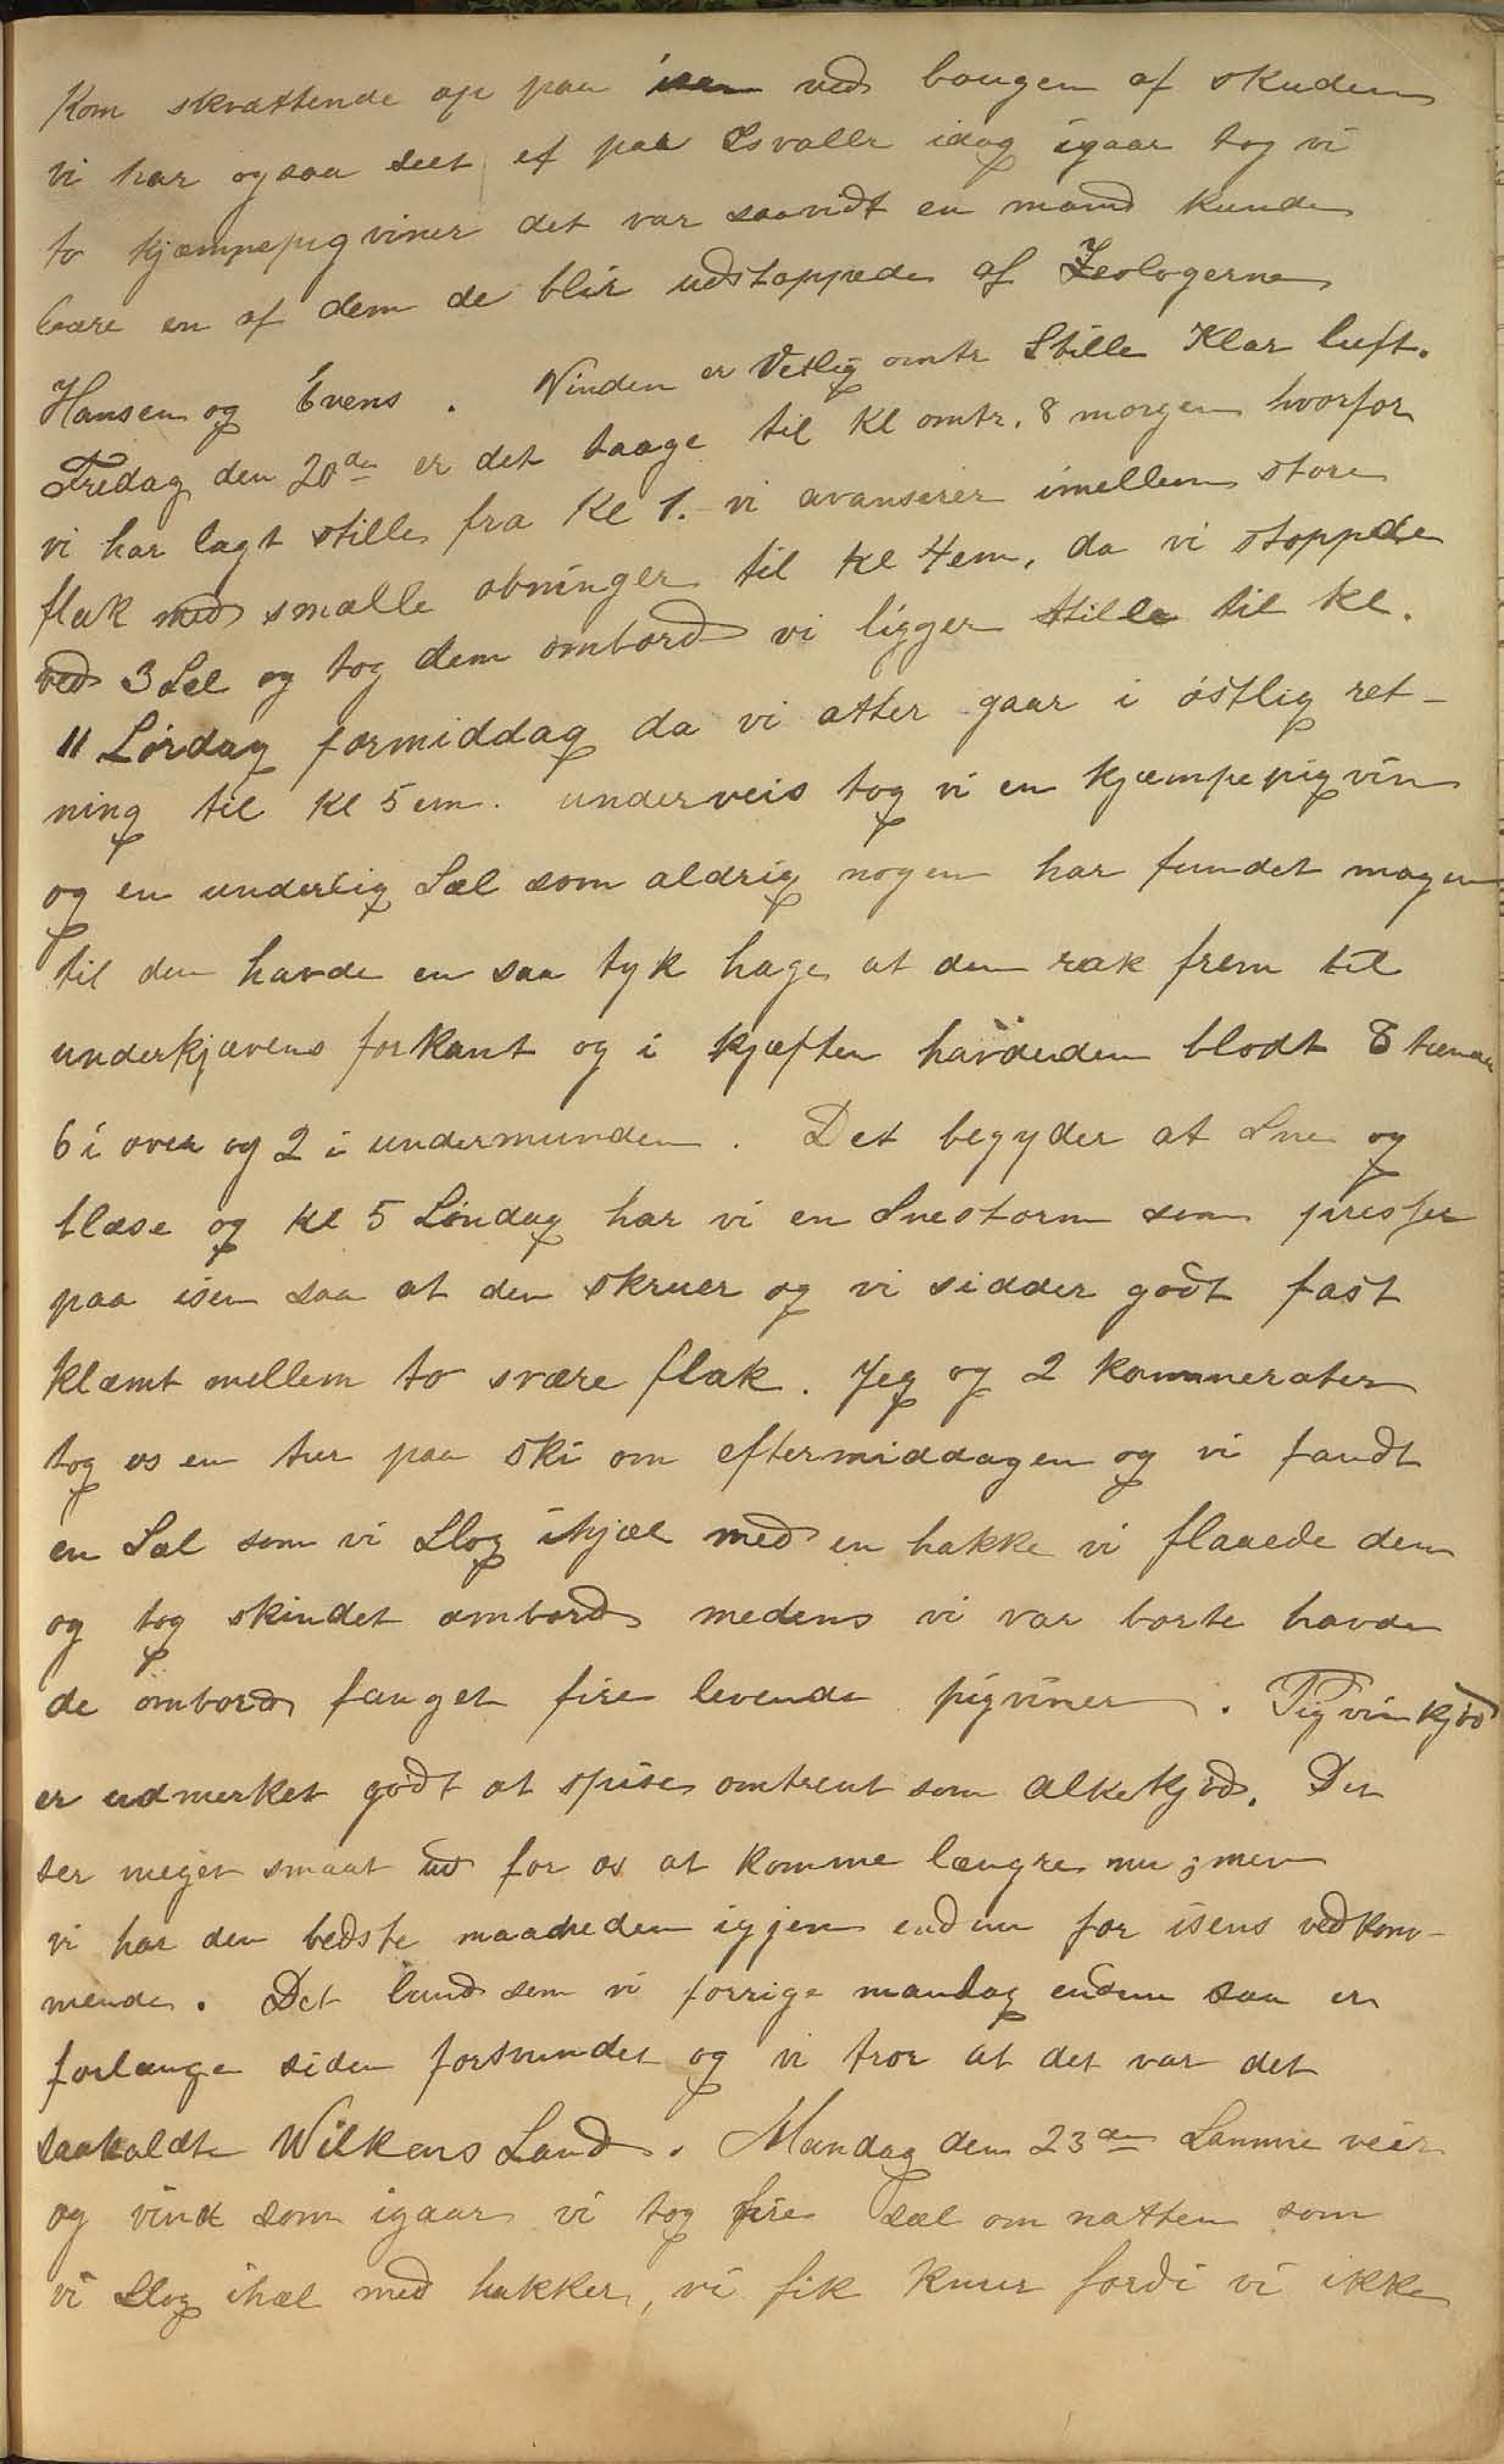 Kom skvættende op paa isen ved bougen af skuden
vi har ogsaa seet et par Isvaller idag igaar tog vi
to kjæmpepigviner det var saavidt en mand kunde
bære en af dem de blir udstoppede af Zeologerne
Hansen og Evens. Vinden er Vestlig omtr Stille Klar luft.
Fredag den 20de er det taage til kl omtr. 8 morgen hvorfor
vi har lagt stille fra Kl 1. vi avanserer imellem store
flak med smalle obninger til kl 4 em, da vi stoppede
ved 3 Sel og tog dem ombord vi ligger stille til kl.
11 Lørdag formiddag da vi atter gaar i østlig ret-
ning til kl 5 em. underveis tog vi en kjæmpepigvin
og en underlig Sæl som aldrig nogen har fundet magen
til den havde en saa tyk hage at den rak frem til
underkjævens forkant og i kjæften havde den blodt 8 tænder
6 i over og 2 i undermunden. Det begyder at Sne og
blæse og kl 5 Søndag har vi en Snestorm som presser
paa isen saa at den skruer og vi sidder godt fast
klæmt mellem to svære flak. Jeg og 2 kammerater
tog os en tur paa ski om eftermiddagen og vi fandt
en Sæl som vi Slog ihjæl med en hakke vi flaaede den
og tog skindet ombord medens vi var borte havde
de ombord fanget fire levende pigviner. Pigvinkjød
er udmerket godt at spise omtrent som alkekjød. Det
ser meget smaat ud for os at komme længre nu; men
vi har den bedste maaneden igjen endnu for isens vedkom-
mende. Det land som vi forrige mandag endnu saa er
forlænge siden forsvundet og vi tror at det var det
saakaldte Wilkens Land. Mandag den 23de Samme veir
og vind som igaar vi tog fire Sæl om natten som
vi Slog ihæl med hakker, vi fik knur fordi vi ikke